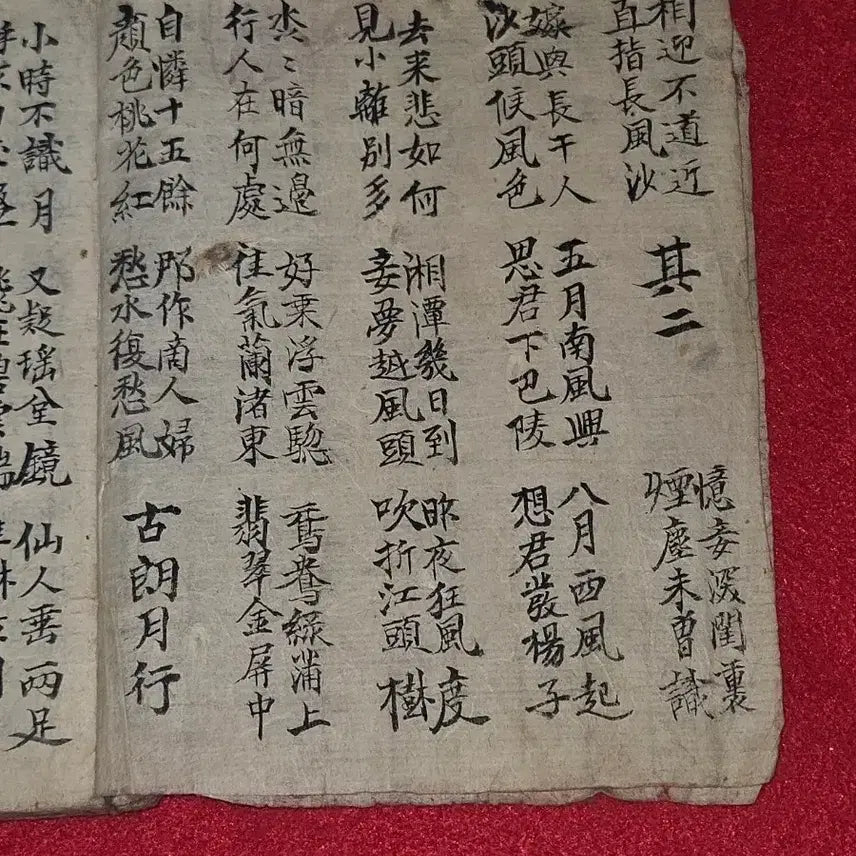 相迎不道近
直指長風沙
其二
憶妾深閨裏
煙塵未曾識
嫁與長干人
沙頭候風色
五月南風興
思君下巴陵
八月西風起
想君發楊子
去来悲如何
見小離別多
湘潭幾日到
妾夢越風頭
昨夜狂風度
吹折江頭樹
淼〻暗無邊
行人在何處
好乗浮雲騘
佳氣蘭渚東
鴛鴦綠浦上
翡翠金屏中
自憐十五餘
顔色桃花紅
那作商人婦
愁水復愁風
古朗月行
小時不識月
又疑瑶全鏡
仙人垂兩足